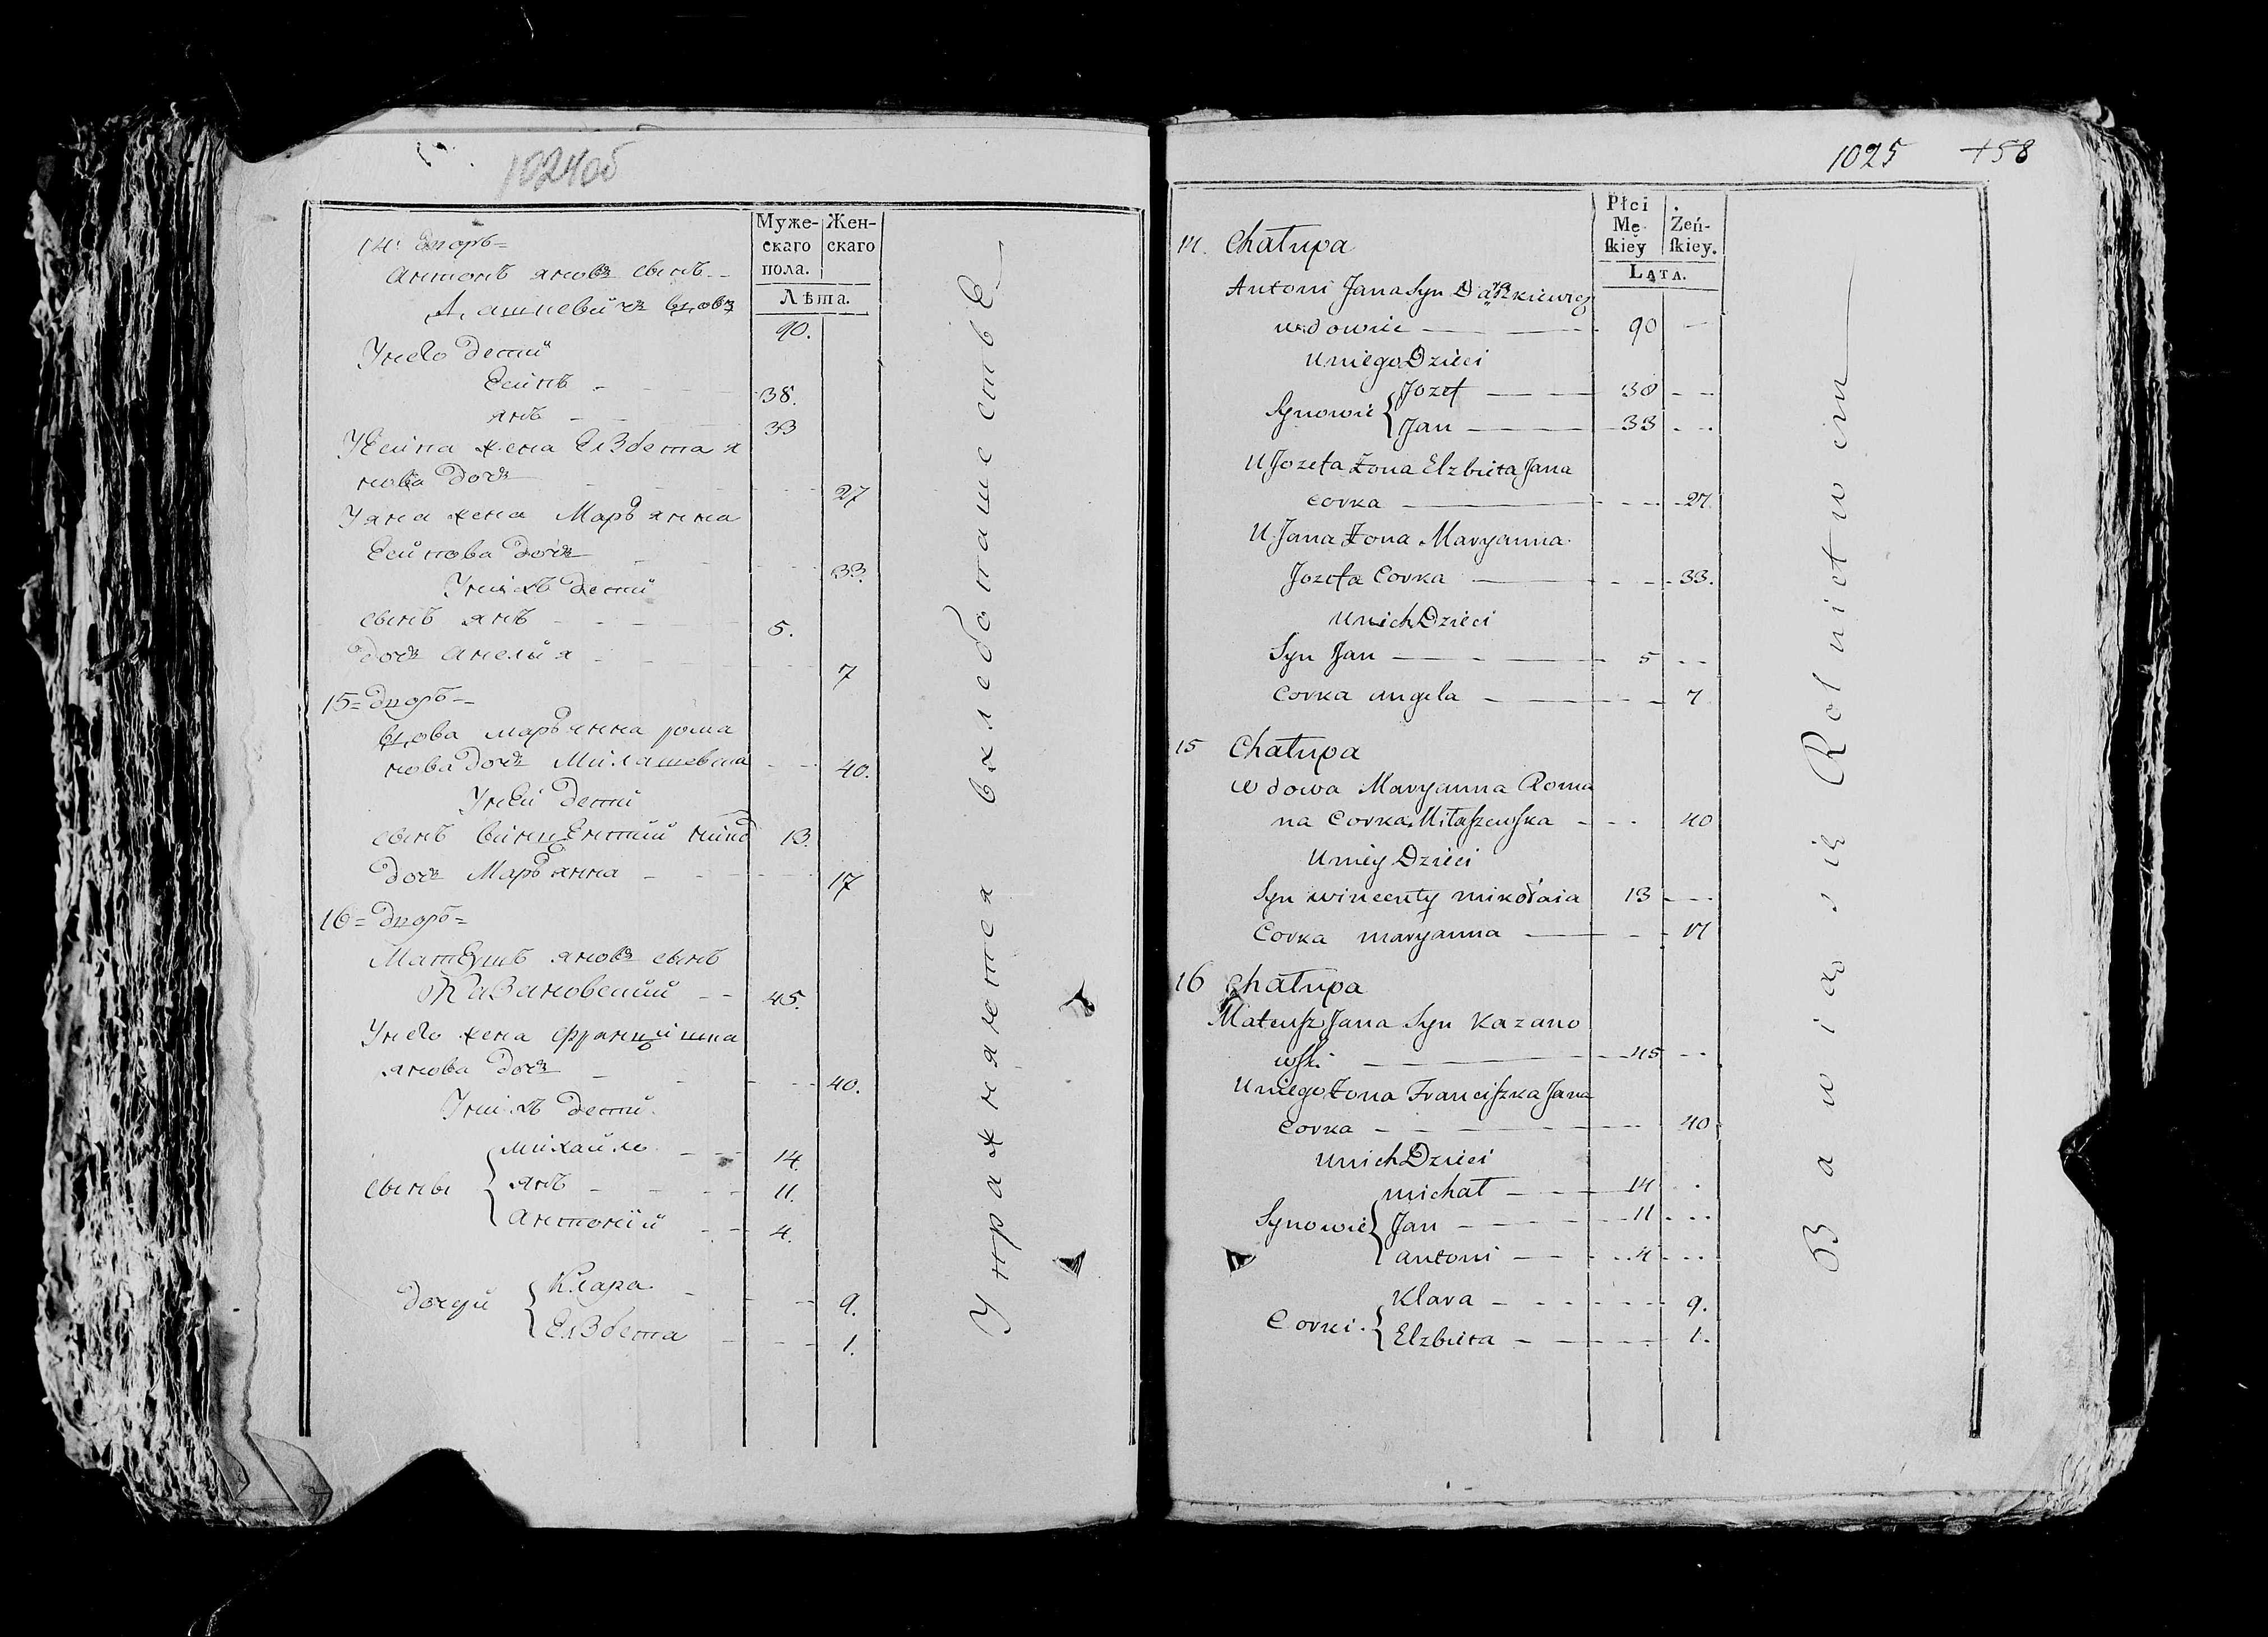 1024об
Муже-
скаго
пола.
Жен-
скаго
Лѣта.
14: Дворъ=
Антонъ яновъ сынъ
Дашкевичъ вдовъ
90.
Унего детй
Есипъ 38.
янъ 33
УЕсипа жена Елзбета я
нова дочь 27
Уяна жена Марьянна
Есипова дочь 33.
Унихъ детй
сынъ янъ 5.
дочь анеля 7
15=Дворъ=
вдова марьянна рома
нова дочь Милашевска 40.
Уней детй
сынъ винцентий 13.
дочь Марьянна 17
16=Дворъ=
Матеушъ яновъ сынъ
Казановский 45.
Унего жена францишка
янова дочь 40.
Унихъ детй.
сыны
михайло 14.
янъ 11.
антоний 4.
дочери
Клара 9.
Елзбета 1.
Упражняются вхлебопашестве
1025 +58
Płci
Mę-
skiey
Żeń-
skiey.
Lata.
14. Chałupa
Antoni Jana Syn Daszkiewicz
wdowiec 90
Uniego Dzieci
Synowie
Jozef 38
Jan 33
U Jozefa żona Elzbieta Jana
corka 27.
U Jana żona Maryanna
Jozefa Corka 33.
Unich Dzieci
Syn Jan 5
Corka angela 7
15 Chałupa
wdowa Maryanna Roma
na Corka Miłaszewska 40
Uniey Dzieci
Syn wincenty mikołaia 13
Corka maryanna 17
16 Chałupa
Mateusz Jana Syn Kazano
wski 45
Uniego żona Franciszka Jana
Corka 40
Unich Dzieci
Synowie
michał 14
Jan 11
antoni 4
Corki.
Klara 9.
Elzbieta 1.
Bawią się Rolnictwem